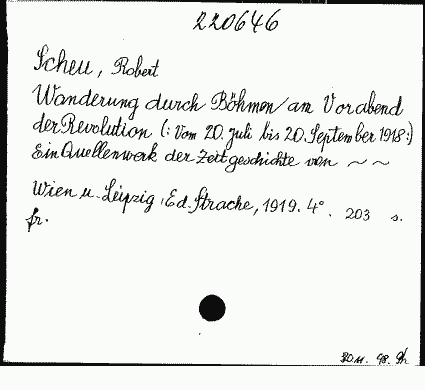 220646
Scheu, Robert
Wanderung durch Böhmen am Vorabend
der Revolution (: Vom 20. Juli bis 20. September 1918 :)
Ein Quellenwerk der Zeitgeschichte von ~ ~
Wien u. Leipzig, Ed. Strache, 1919. 4°. 203 s.
fr.